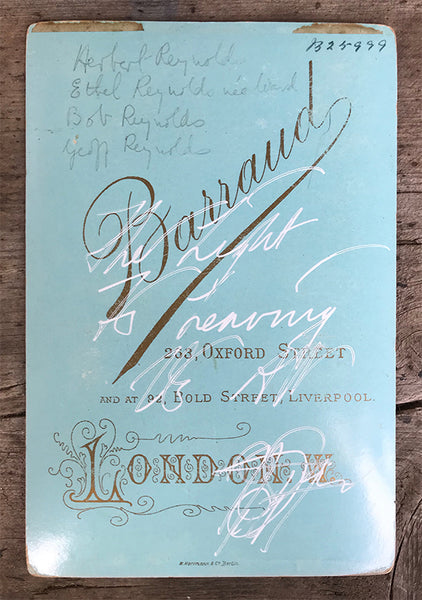 B25999
Herbert Reynolds
Ethel Reynolds née Ward
Bob Reynolds
Geoff Reynolds
Barraud
The Night
Is Leaving
Us
263, OXFORD STREET
AND AT 92, BOLD STREET, LIVERPOOL.
LONDON. W.